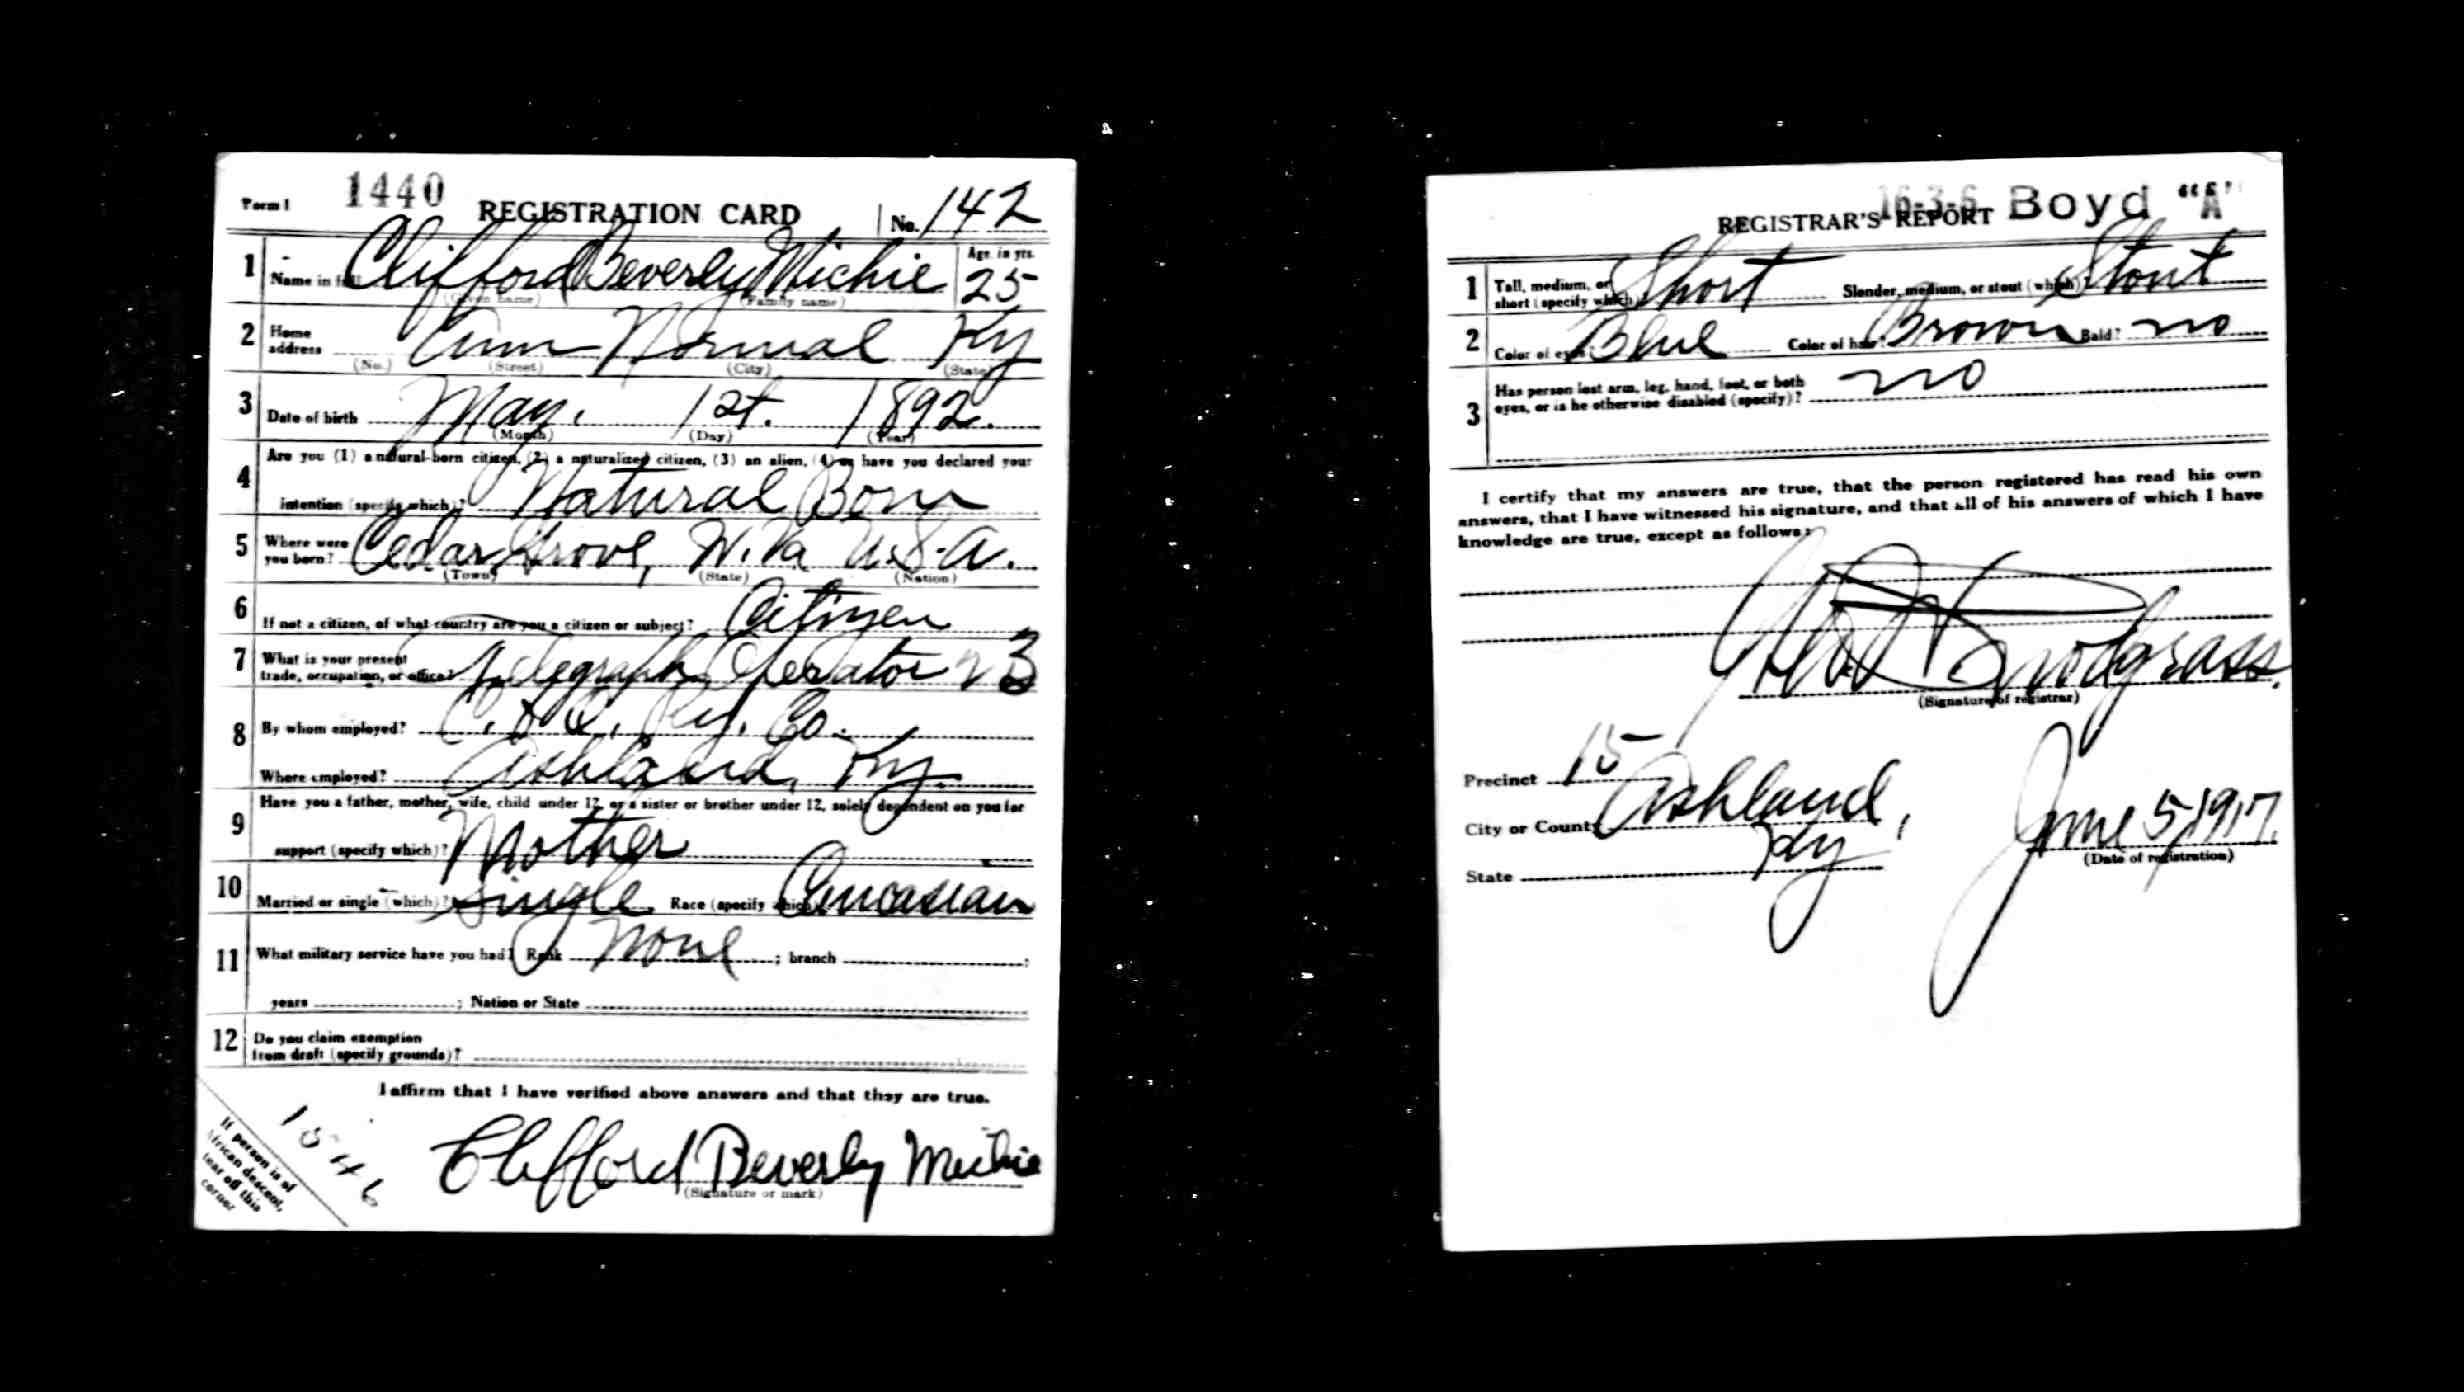 Form 1 1440 REGISTRATION CARD No. 142
1 Name in full Clifford Beverly Michie Age, in yrs. 25
(Given name) (Family name)
2 Home address Ann Normal Ky
(No.) (Street) (City) (State)
3 Date of birth May. 1st. 1892.
(Month) (Day) (Year)
4 Are you (1) a natural-born citizen, (2) a naturalized citizen, (3) an alien, (4) or have you declared your
intention (specify which)? Natural Born
5 Where were you born? Cedar Grove, W. Va. U.S.A.
(Town) (State) (Nation)
6 If not a citizen, of what country are you a citizen or subject? Citizen
7 What is your present
trade, occupation, or office? Telegraph Operator 23
8 By whom employed? C. & O. Ry. Co.
Where employed? Ashland, Ky.
9 Have you a father, mother, wife, child under 12, or a sister or brother under 12, solely dependent on you for
support (specify which)? Mother
10 Married or single (which)? Single Race (specify which)? Caucasian
11 What military service have you had? Rank None ; branch ;
years ; Nation or State
12 Do you claim exemption
from draft (specify grounds)?
I affirm that I have verified above answers and that they are true.
Clifford Beverly Michie
(Signature or mark)
If person is of
African descent,
tear off this
corner
16-3-6 Boyd "A"
REGISTRAR'S REPORT
1 Tall, medium, or
short (specify which)? Short Slender, medium, or stout (which)? Stout
2 Color of eyes? Blue Color of hair? Brown Bald? no
3 Has person lost arm, leg, hand, foot, or both
eyes, or is he otherwise disabled (specify)? no
I certify that my answers are true, that the person registered has read his own
answers, that I have witnessed his signature, and that all of his answers of which I have
knowledge are true, except as follows:
Snodgrass.
(Signature of registrar)
Precinct 15
City or County Ashland, June 5, 1917.
State Ky (Date of registration)